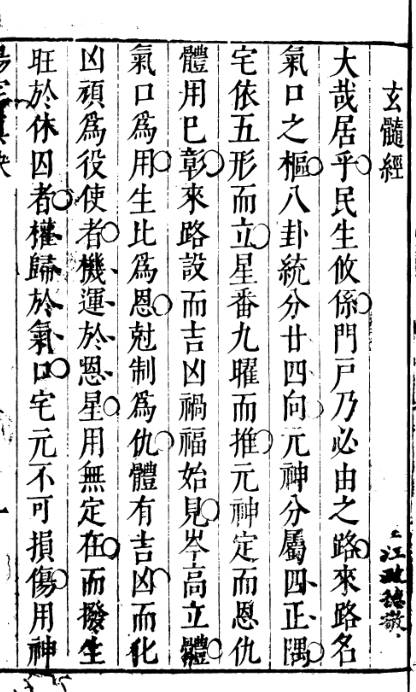 玄髓經
大哉居乎民生攸係門戸乃必由之路來路名
氣口之樞八卦統分廿四向元神分屬四正隅
宅依五形而立星番九曜而推元神定而恩仇
體用巳彰來路設而吉凶禍福始見岑高立體
氣口爲用生比爲恩尅制爲仇體有吉凶而化
凶頑爲役使者機運於恩星用無定在而撥生
旺於休囚者權歸於氣口宅元不可損傷用神